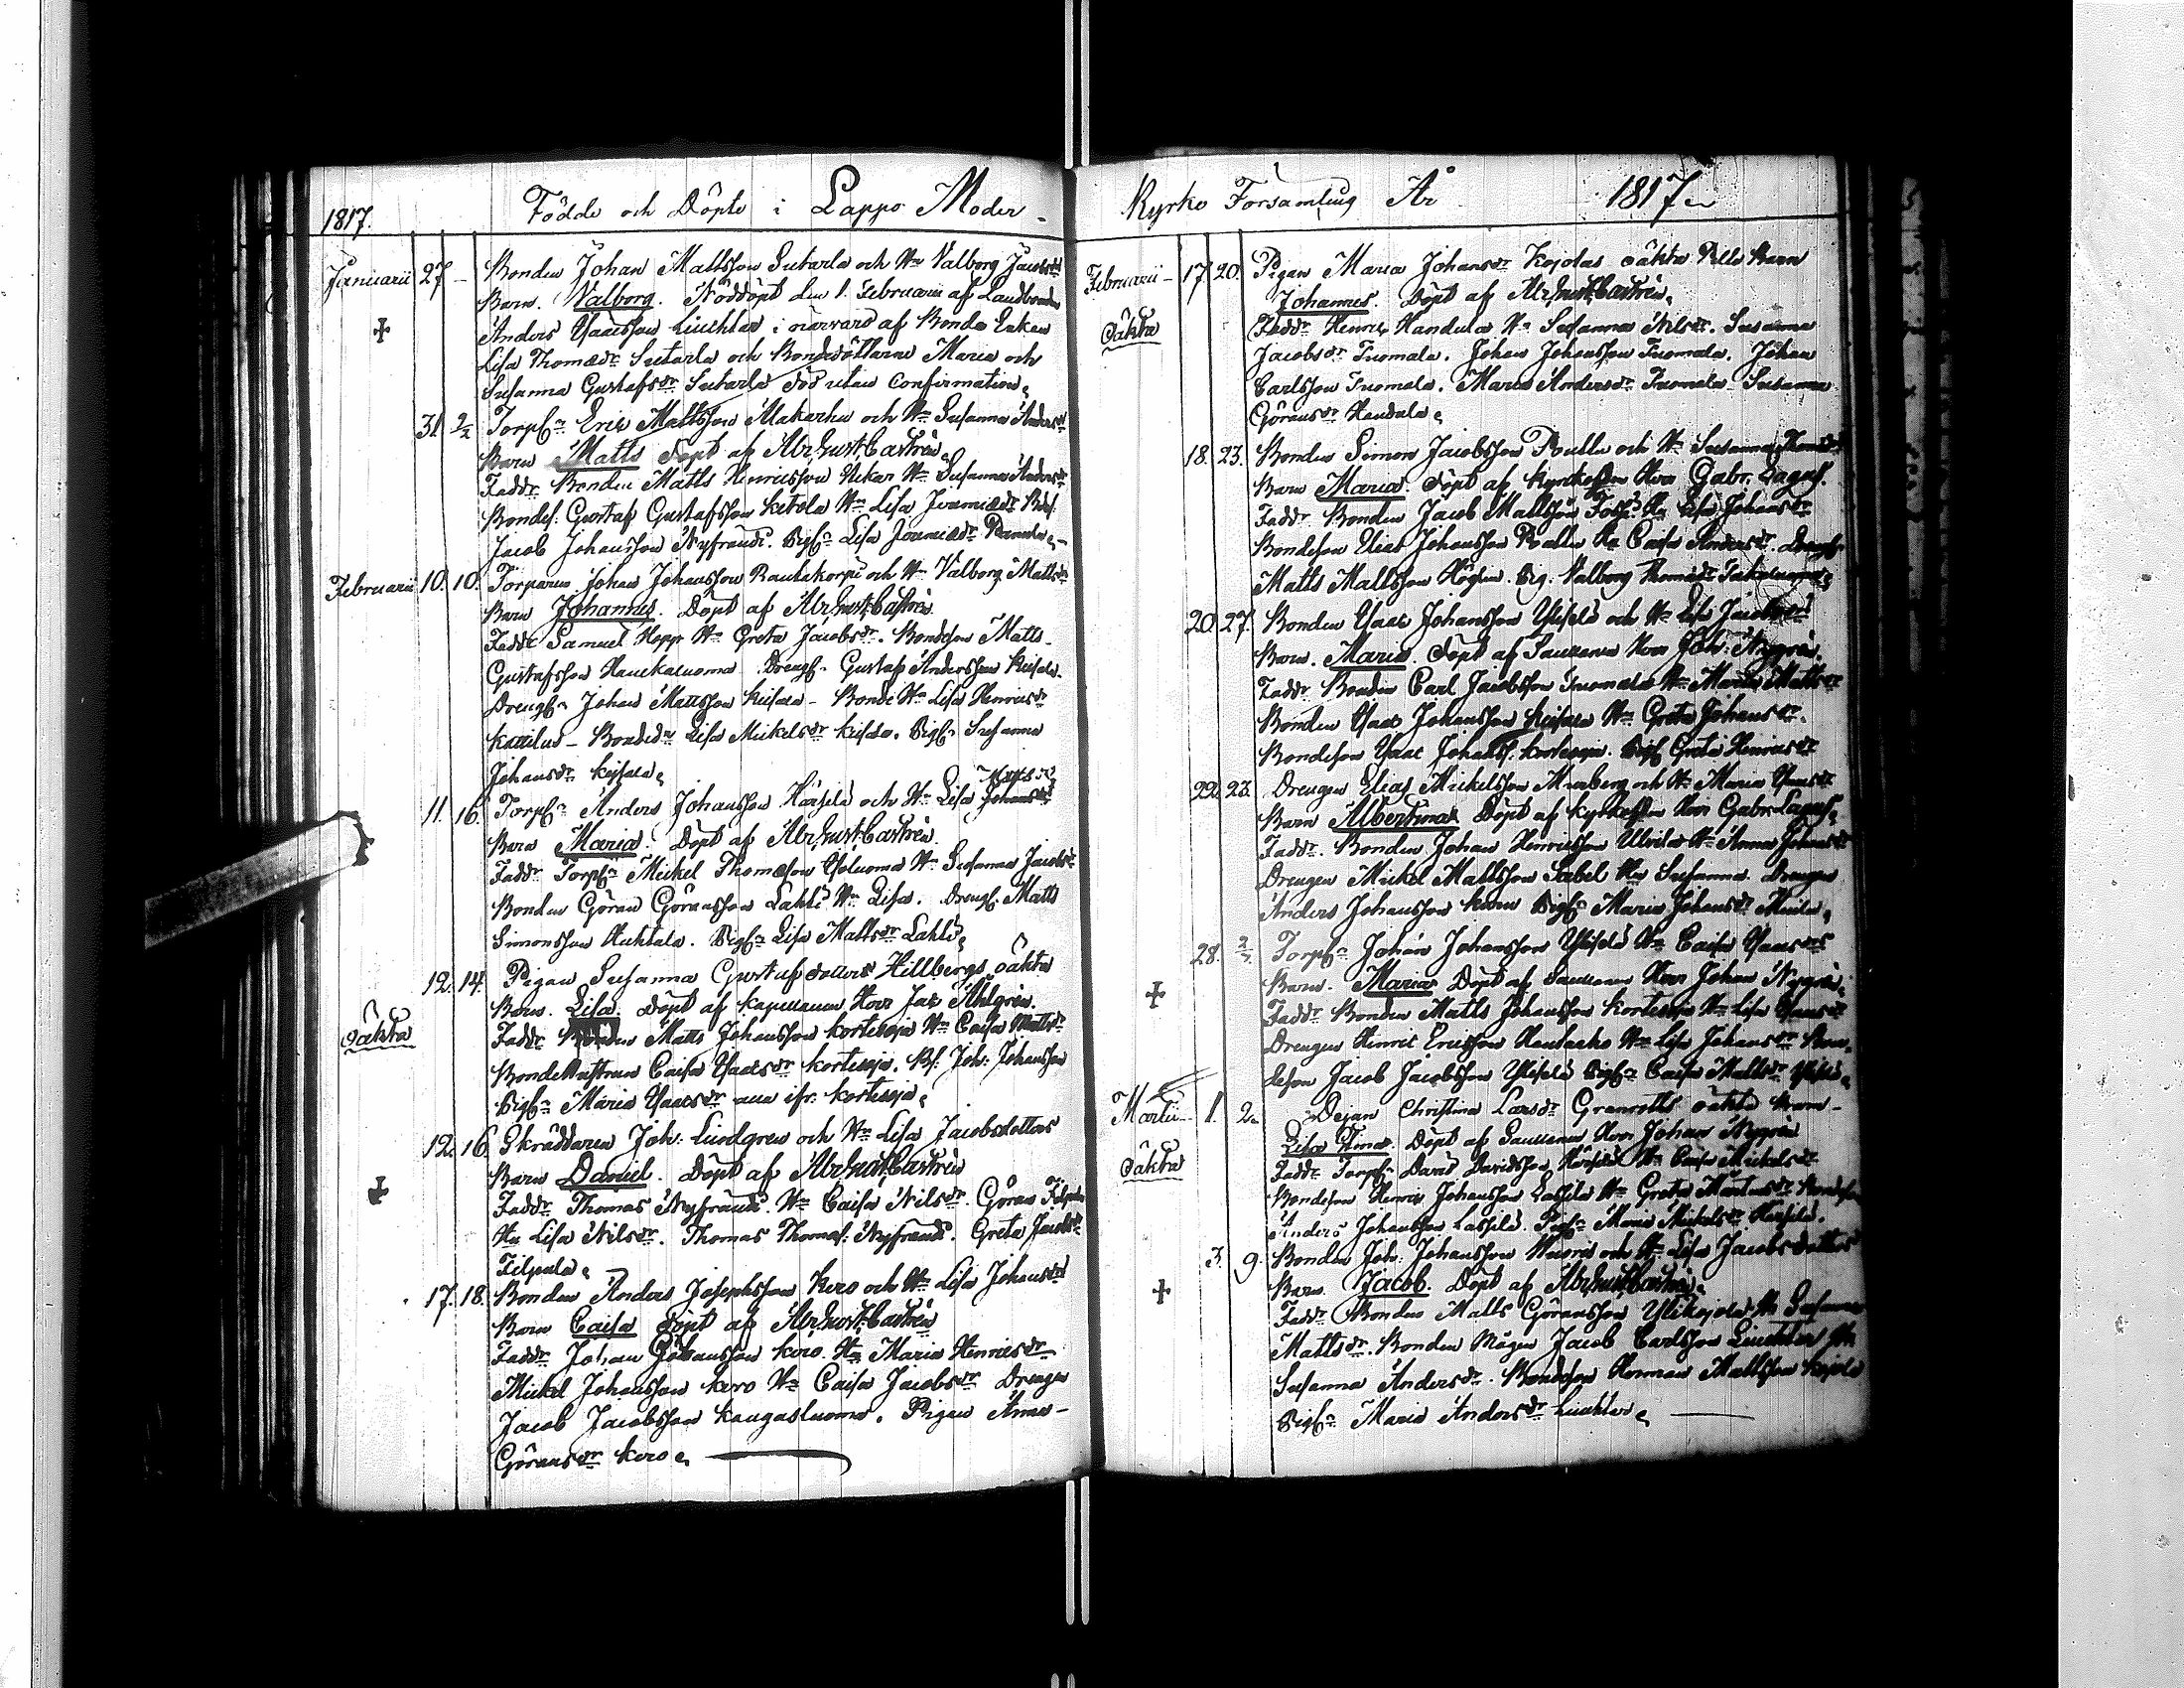 1817. Födde och Döpte i Lappo Moder-
Januarii 27 - Bonden Johan Mattsson Sutarla och Hn Valborg Jacobsdr
Barn. Valborg. Nöddöpt den 1. Februarii af Landbonden
Anders Isacsson Liuchtar i närvaro af Bonde Enkan
Lisa Thomædr Sutarla och Bondedöttrarne Maria och
Susanna Gustafsdr Sutarla död utan Confirmation.
31. 2/2 Torpn Eric Mattsson Alakarhu och Hn Susanna Andersdr
Barn Matts döpt af Abr: Gust: Castrén.
Faddr Bonden Matts Henricsson Hn Susanna Andersdr
Bondes: Gustaf Gustafsson Ketola Hn Lisa
Jacob Johansson Nyfrände. Pign Lisa
Februarii 10. 10. Torparen Johan Johansson Rautakorpi och Hn Valborg Mattsdr
Barn Johannes. Döpt af Abr: Gust: Castrén.
Faddr Samuel Hopp Hn Greta Jacobsdr. Bondeson Matts
Gustafsson Haukaluoma Drengn Gustaf Andersson
Drengn Johan Mattsson - Bonde Hn Lisa Henricsdr
Kattilus - Bondedn Lisa Mickelsdr Pign Susanna
Johansdr
11. 16. Torpn Anders Johansson Härsilä och Hn Lisa Johansdr Matts dr
Barn Maria. Döpt af Abr: Gust: Castrén.
Faddr Torpn Mickel Thomæson Hn Susanna Jacobsdr
Bonden Göran Göransson Lahti Hn Lisa. Drengn Matts
Simonsson Huhtala. Pign Lisa Mattsdr Lahti.
12. 14. Pigan Susanna Gustafsdotters Hillbergs oäkta
oäkta Barn. Lisa. Döpt af Kapellanen Herr Jac Ahlgrén.
Faddr Bonden Matts Johansson Kortesoja Hn Caisa Mattsdr
Bonde Hustrun Caisa Isacsdr Kortesoja. Bs: Joh: Johansson
Pign Maria Isacsdr alla ifr: Kortesoja.
12. 16. Skräddaren Joh: Lindgren och Hn Lisa Jacobsdotters
Barn Daniel. Döpt af Abr: Gust: Castrén
Faddr Thomas Nyfrände. Hn Caisa Nilsdr. Göran Filpula
Hn Lisa Nilsdr. Thomas Thomæs: Nyfrände. Greta Jacobsdr
Filpula.
17. 18. Bonden Anders Josephsson Kero och Hn Lisa Johansdr
Barn Caisa döpt af Abr: Gust: Castrén
Faddr Johan Johansson Kero. Hn Maria Henricsdr
Mickel Johansson Kero Hn Caisa Jacobsdr Drengen
Jacob Jacobsson Kangasluoma. Pigan Anna
Göransdr Kero.
Kyrko Församling År 1817.
Februarii - 17. 20. Pigan Maria Johansdr Kojolas oäkta Barn
Johannes. Döpt af Abr: Gust: Castrén.
oäkta Faddr Henric Handula Hn Susanna Nilsdr. Susanna
Jacobsdr Tuomala. Johan Johansson Tuomala. Johan
Carlsson Tuomala. Maria Andersdr Tuomala Susanna
Göransdr Handula.
18. 23. Bonden Simon Jacobsson Rulla och Hn Susanna
Barn Maria. döpt af Kyrkoh. Herr Gabr. Lagus.
Faddr Bonden Jacob Mattsson Hn Lisa Johansdr
Bondeson Elias Johansson Hn Caisa Andersdr. Drengn
Matts Mattsson Högben. Pig. Valborg Thomædr
20. 27. Bonden Isac Johansson Ylisilä och Hn Lisa Jacobsdr
Barn. Maria. Döpt af Herr Joh: Nygrén.
Faddr Bonden Carl Jacobsson Tuomala Hn Maria Mattsdr
Bonden Isac Johansson Hn Greta Johansdr.
Bondeson Isac Johanss. Kortesoja. Pign Greta Henricsdr
22. 23. Drengen Elias Mickelsson och Hn Maria Isacsdr
Barn Albertina Döpt af Kyrkoh. Herr Gabr Lagus.
Faddr. Bonden Johan Henricsson Hn Anna Johansdr
Drengen Mickel Mattsson Sabel Hn Susanna. Drengen
Anders Johansson Pign Maria Johansdr
28. Torpn Johan Johansson Ylisilä Hn Caisa Isacsdr
Barn. Maria. Döpt af Herr Johan Nygrén.
Faddr Bonden Matts Johansson Kortesoja Hn Lisa Isacsdr
Drengen Henric Ericsson Hn Lisa Johansdr Bon-
deson Jacob Jacobsson Ylisilä Pign Caisa Mattsdr Ylisilä.
Martii 1. 2. Pigan Christina Larsdr Granroths oäkta Barn
Lisa Stina. Döpt af Herr Johan Nygrén
oäkta Faddr Torpn David Davidsson Härsilä Hn Caisa Mickelsdr
Bondeson Henric Johansson Lassila Hn Greta Bondeson
Anders Johansson Lassila. Pign Maria Mickelsdr
3. 9. Bonden Joh: Johansson och Hn Lisa Jacobsdotters
Barn. Jacob. Döpt af Abr: Gust: Castrén.
Faddr Bonden Matts Göransson Ylikojola Hn Susanna
Mattsdr. Bonden Mågen Jacob Carlsson Liuchtar Hn
Susanna Andersdr. Bondeson Herman Mattsson Kojola
Pign Maria Andersdr Liuchtar.